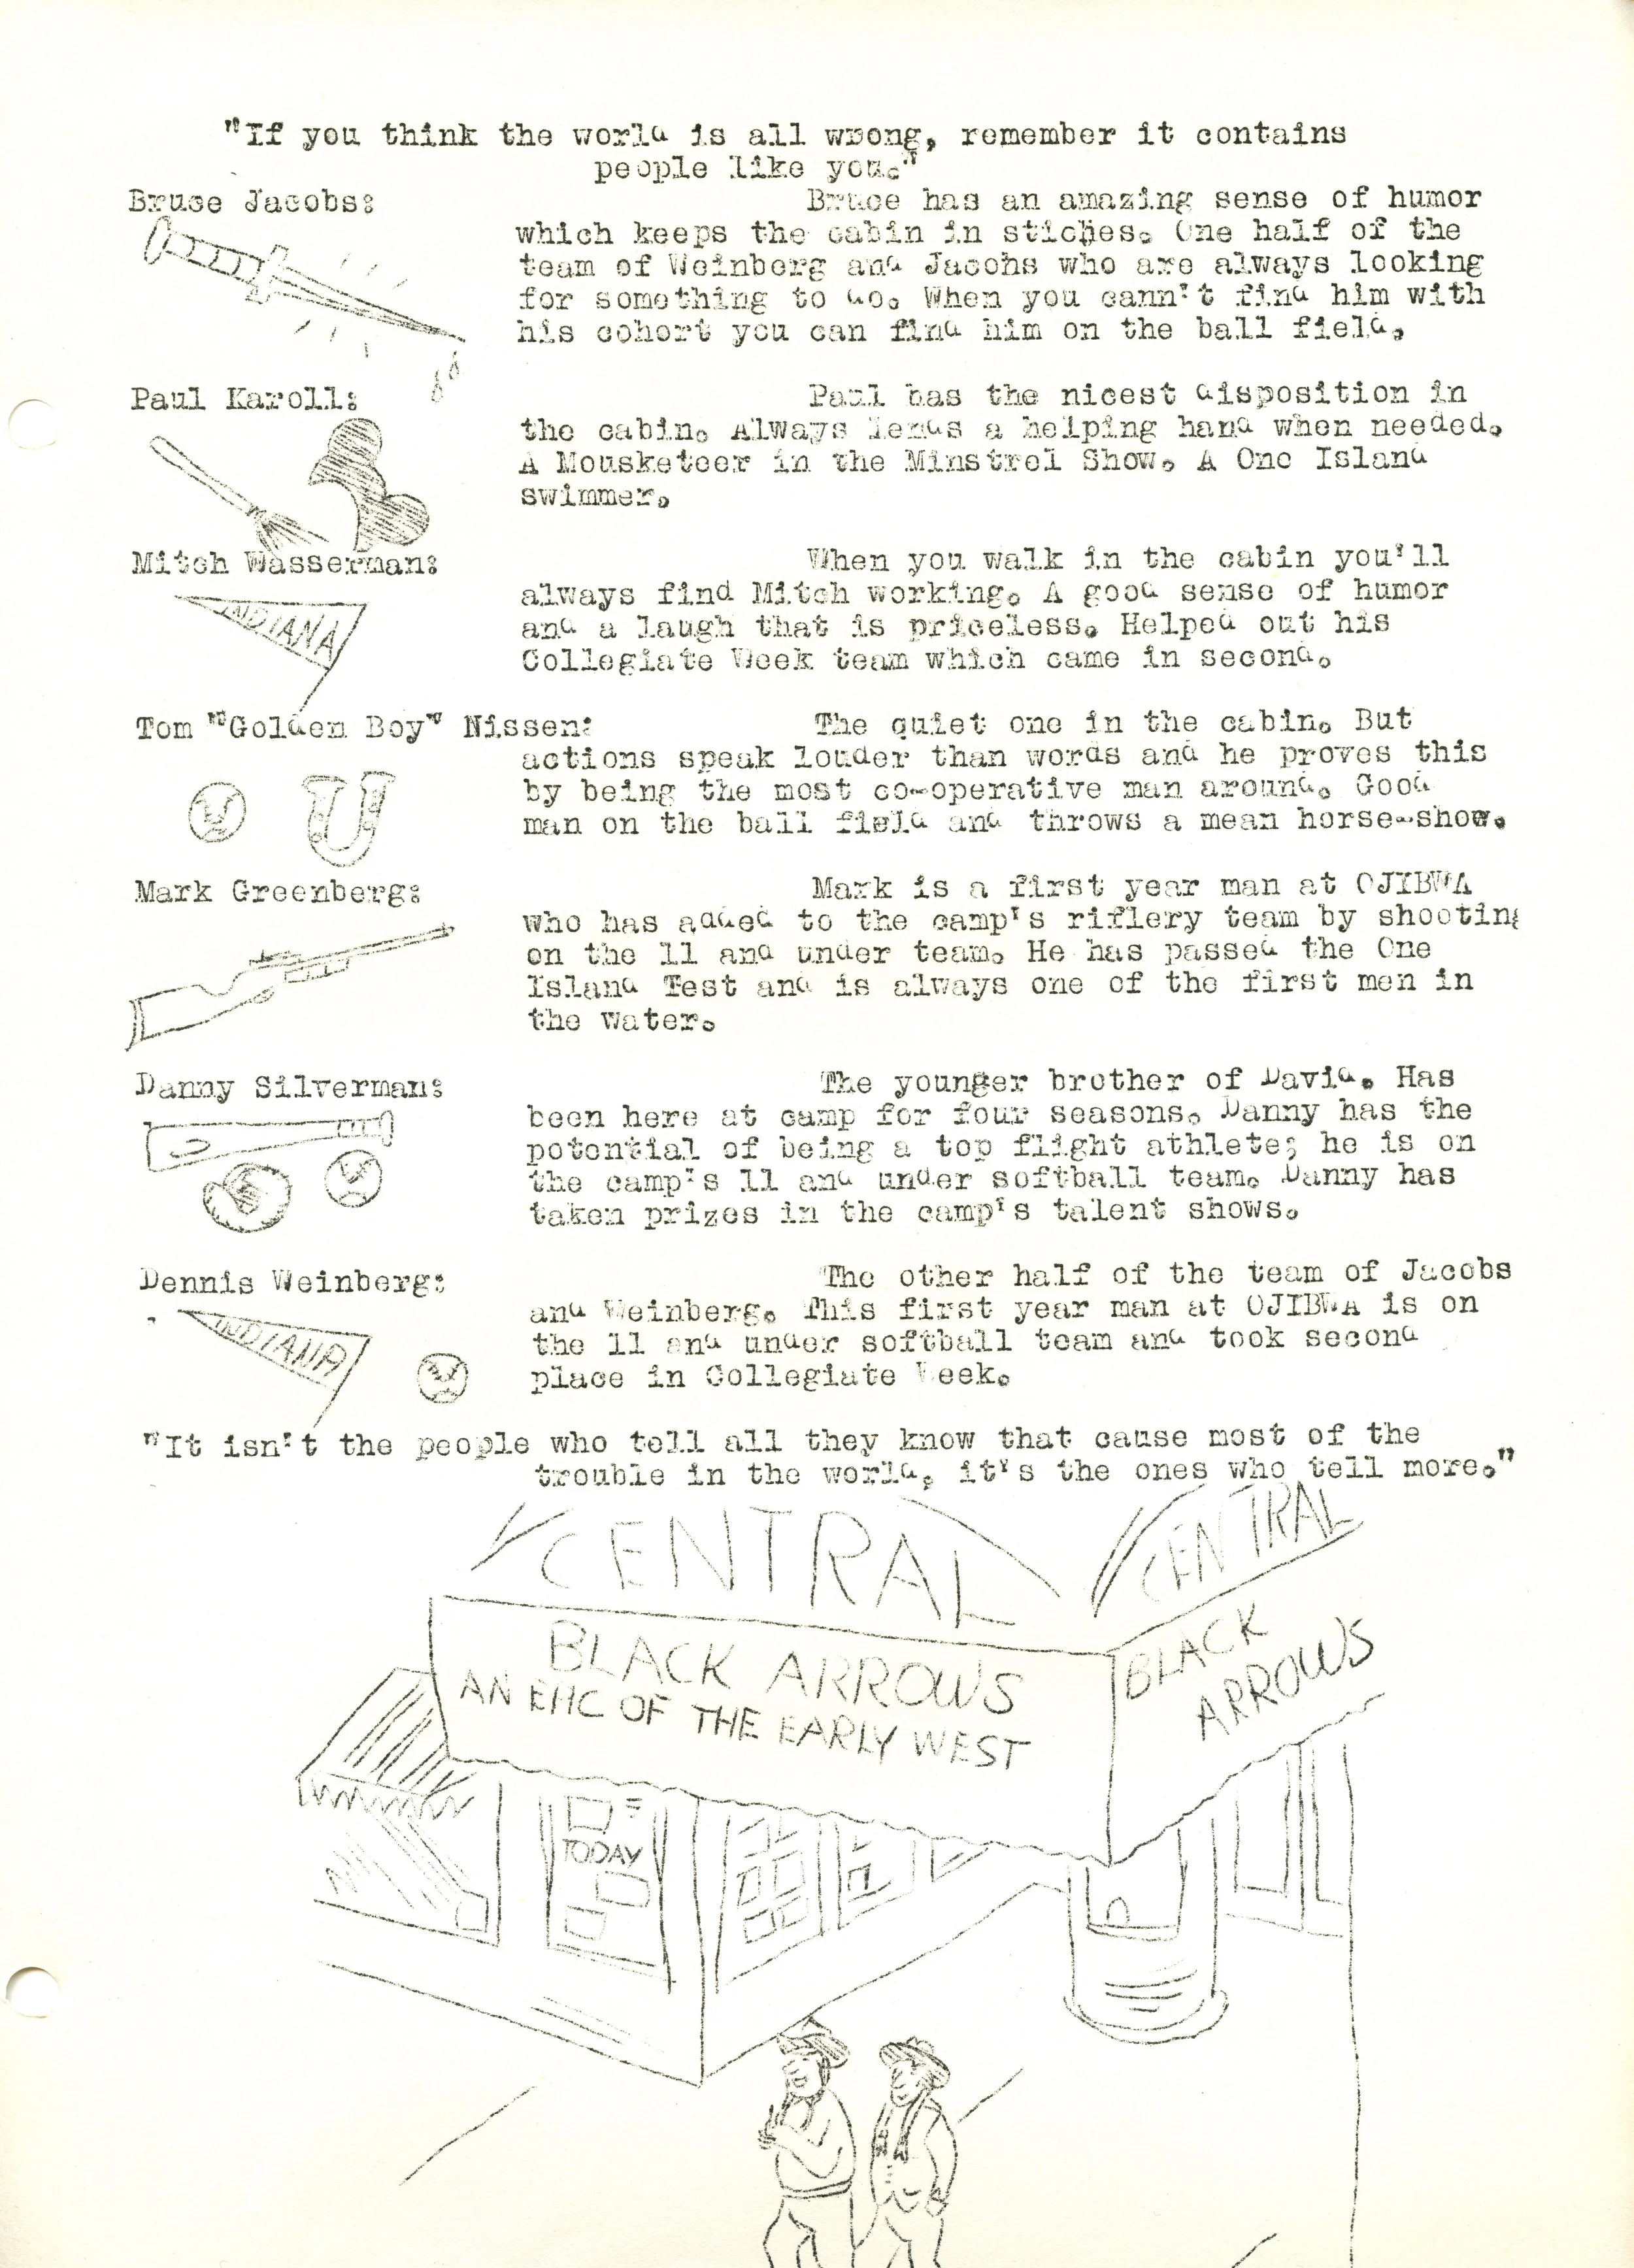 "If you think the world is all wrong, remember it contains
people like you."
Bruce Jacobs: Bruce has an amazing sense of humor
which keeps the cabin in stiches. One half of the
team of Weinberg and Jacobs who are always looking
for something to do. When you cann't find him with
his cohort you can find him on the ball field.
Paul Karoll: Paul has the nicest disposition in
the cabin. Always lends a helping hand when needed.
A Mousketeer in the Minstrel Show. A One Island
swimmer.
Mitch Wasserman: When you walk in the cabin you'll
always find Mitch working. A good sense of humor
and a laugh that is priceless. Helped out his
Collegiate Week team which came in second.
INDIANA
Tom "Golden Boy" Nissen: The quiet one in the cabin. But
actions speak louder than words and he proves this
by being the most co-operative man around. Good
man on the ball field and throws a mean horse-show.
Mark Greenberg: Mark is a first year man at OJIBWA
who has added to the camp's riflery team by shooting
on the 11 and under team. He has passed the One
Island Test and is always one of the first men in
the water.
Danny Silverman: The younger brother of David. Has
been here at camp for four seasons. Danny has the
potential of being a top flight athlete; he is on
the camp's 11 and under softball team. Danny has
taken prizes in the camp's talent shows.
Dennis Weinberg: The other half of the team of Jacobs
and Weinberg. This first year man at OJIBWA is on
the 11 and under softball team and took second
place in Collegiate Week.
INDIANA
"It isn't the people who tell all they know that cause most of the
trouble in the world, it's the ones who tell more."
CENTRAL
CENTRAL
BLACK ARROWS
AN EHC OF THE EARLY WEST
BLACK
ARROWS
TODAY